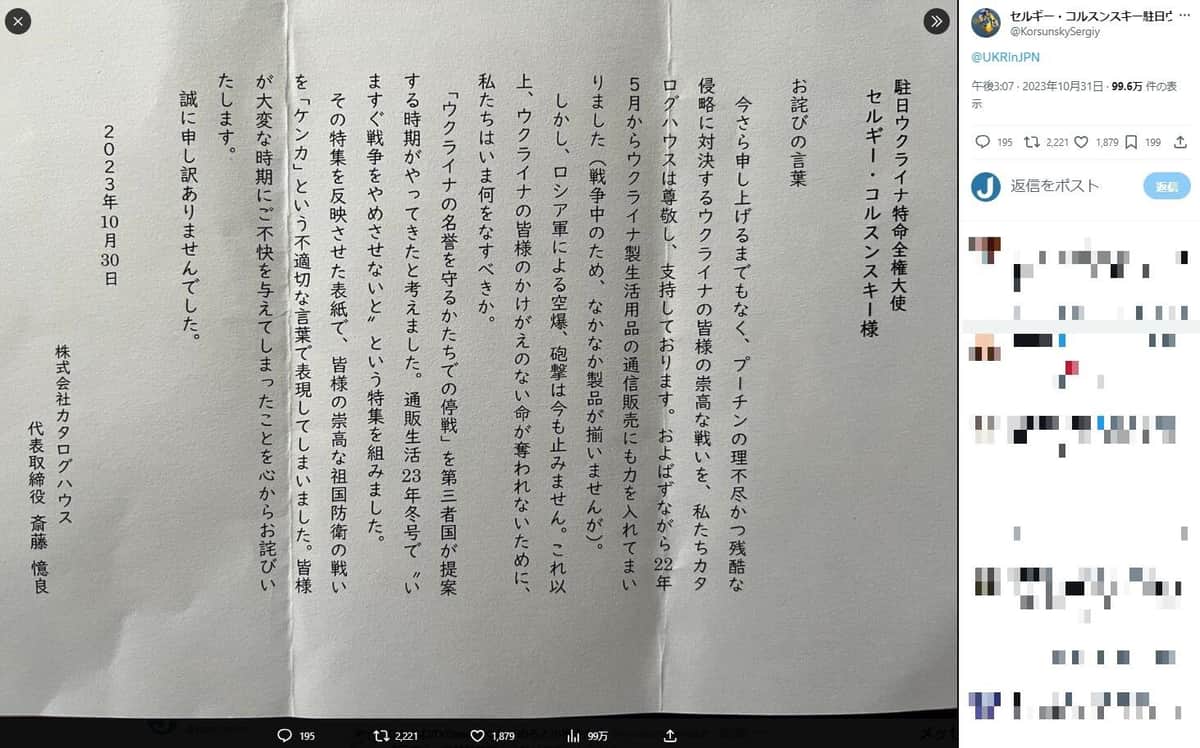 駐日ウクライナ特命全権大使
セルギー・コルスンスキー様
お詫びの言葉
今さら申し上げるまでもなく、プーチンの理不尽かつ残酷な
侵略に対決するウクライナの皆様の崇高な戦いを、私たちカタ
ログハウスは尊敬し、支持しております。およばずながら22年
5月からウクライナ製生活用品の通信販売にも力を入れてまい
りました（戦争中のため、なかなか製品が揃いませんが）。
しかし、ロシア軍による空爆、砲撃は今も止みません。これ以
上、ウクライナの皆様のかけがえのない命が奪われないために、
私たちはいま何をなすべきか。
「ウクライナの名誉を守るかたちでの停戦」を第三者国が提案
する時期がやってきたと考えました。通販生活23年冬号で〝い
ますぐ戦争をやめさせないと〟という特集を組みました。
その特集を反映させた表紙で、皆様の崇高な祖国防衛の戦い
を「ケンカ」という不適切な言葉で表現してしまいました。皆様
が大変な時期にご不快を与えてしまったことを心からお詫びい
たします。
誠に申し訳ありませんでした。
2023年10月30日
株式会社カタログハウス
代表取締役 斎藤 憶良
195
2,221
1,879
99万
セルギー・コルスンスキー駐日ウ …
@KorsunskySergiy
@UKRinJPN
午後3:07 · 2023年10月31日 · 99.6万 件の表
示
195
2,221
1,879
199
返信をポスト
返信